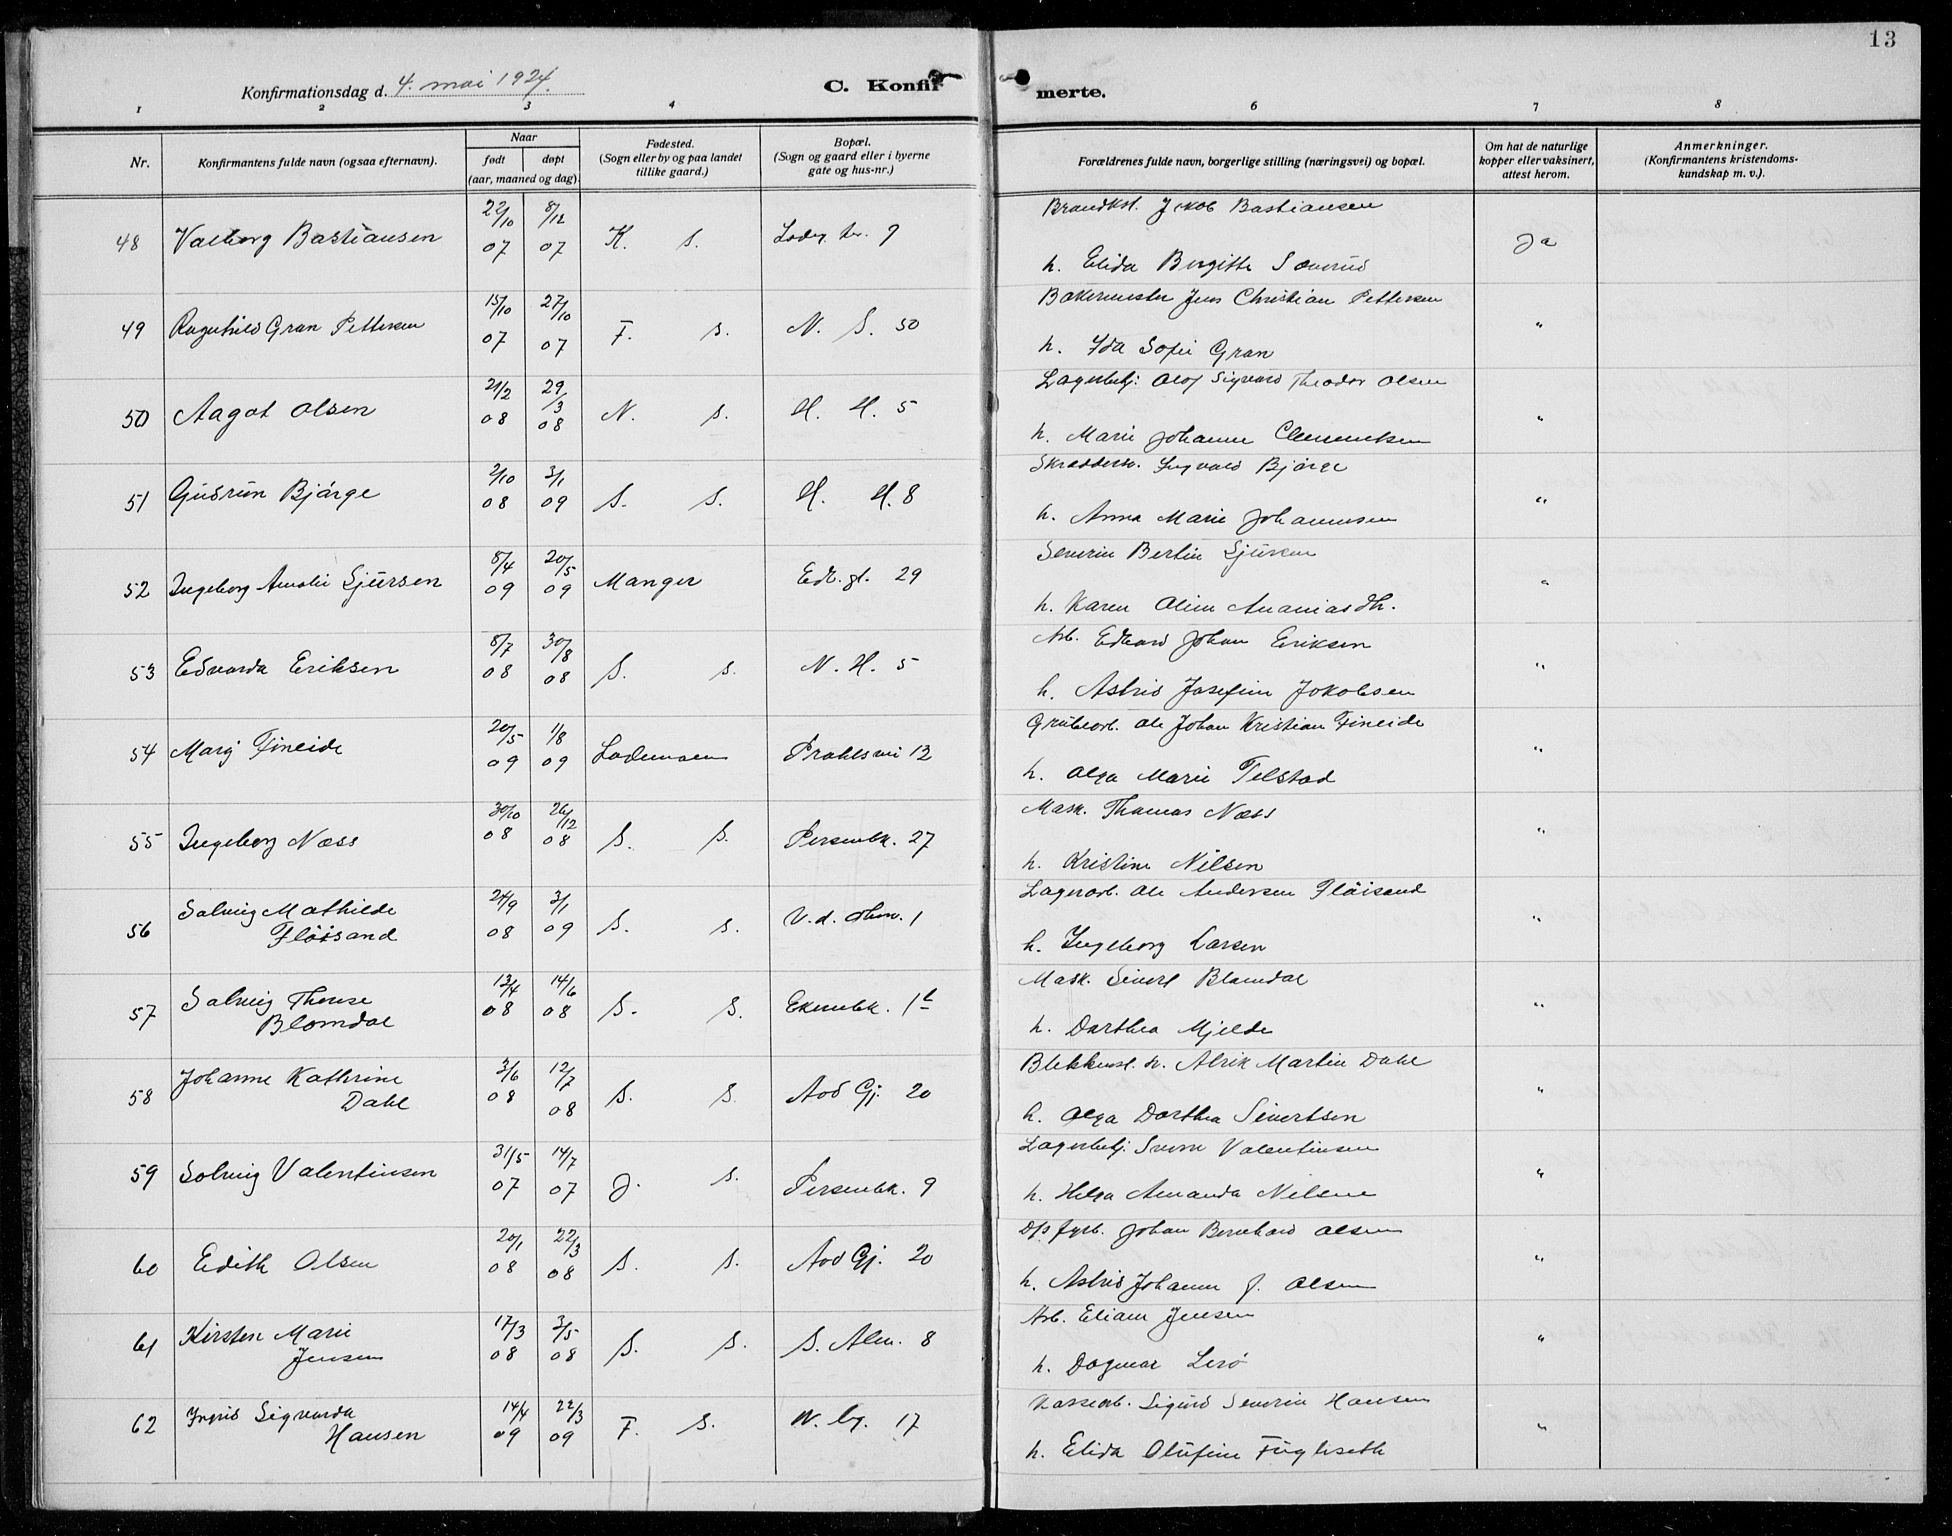 13
Konfirmationsdag d. 4. mai 1924.
C. Konfir
merte.
1 2 3 4 6 7 8
Nr.
Konfirmantens fulde navn (ogsaa efternavn).
Naar
født døpt
(aar, maaned og dag).
Fødested.
(Sogn eller by og paa landet
tillike gaard.)
Bopæl.
(Sogn og gaard eller i byerne
gate og hus-nr.)
Forældrenes fulde navn, borgerlige stilling (næringsvei) og bopæl.
Om hat de naturlige
kopper eller vaksinert,
attest herom.
Anmerkninger.
(Konfirmantens kristendoms-
kundskap m. v.).
22/10 8/12 Brandkst. Jakob Bastiansen
48 Valborg Bastiansen 07 07 K. s. 9 Ja
h. Elida Birgitte Sæverud
15/10 27/10 Bakermester Jens Christian Pettersen
49 Ragnhild Gran Pettersen 07 07 F. s. N. S. 50 "
h. Ida Sofie Gran
21/2 29/3 Lagerbetj. Olof Sigvard Theodor Olsen
50 Aagot Olsen 08 08 N. s. H. H. 5 "
h. Marie Johanne Clemmetsen
2/10 3/1 Skræddersv. Ingvald Bjørge
51 Gudrun Bjørge 08 09 S. s. H. H. 8 "
h. Anna Marie Johannesen
8/4 20/5 Severin Bertin Sjursen
52 Ingeborg Amalie Sjursen 09 09 Manger Edv. gt. 29 "
h. Karen Oline Ananiasdtr.
8/7 30/8 Arb. Edvard Johan Eriksen
53 Edvarda Eriksen 08 08 S. s. N. H. 5 "
h. Astrid Josefine Jakobsen
20/5 1/8 Grubearb. Ole Johan Kristian Fineide
54 Marij Fineide 09 09 Lademoen Prahlsvei 12 "
h. Olga Marie Telstad
30/10 26/12 Mask. Thomas Næss
55 Ingeborg Næss 08 08 S. s. Persenbk. 27 "
h. Kristine Nilsen
24/9 3/1 Lagerarb. Ole Andersen Fløisand
56 Solveig Mathilde
Fløisand 08 09 S. s. V. d. 1 "
h. Ingeborg Larsen
12/4 14/6 Mask. Sivert Blomdal
57 Solveig Therese
Blomdal 08 08 S. s. Ekrenbk. 1b "
h. Dorthea Mjelde
3/6 12/7 Alrik Martin Dahl
58 Johanne Kathrine
Dahl 08 08 S. s. Aad Gj. 20 "
h. Olga Dorthea Sivertsen
31/5 14/7 Lagerbetj. Sverre Valentinsen
59 Solveig Valentinsen 07 07 J. s. Persenbk. 9 "
h. Helga Amanda Nilsen
20/1 22/3 D/s fyrb. Johan Bernhard Olsen
60 Edith Olsen 08 08 S. s. Aad Gj. 20 "
h. Astrid Johanne f. Olsen
17/3 3/5 Arb. Eliam Jensen
61 Kirsten Marie
Jensen 08 08 S. s. S. Alm. 8 "
h. Dagmar Lerø
14/4 22/3 Kassearb. Sigurd Severin Hansen
62 Ingrid Sigvarda
Hansen 09 09 F. s. 17 "
h. Elida Olufine Fuglseth